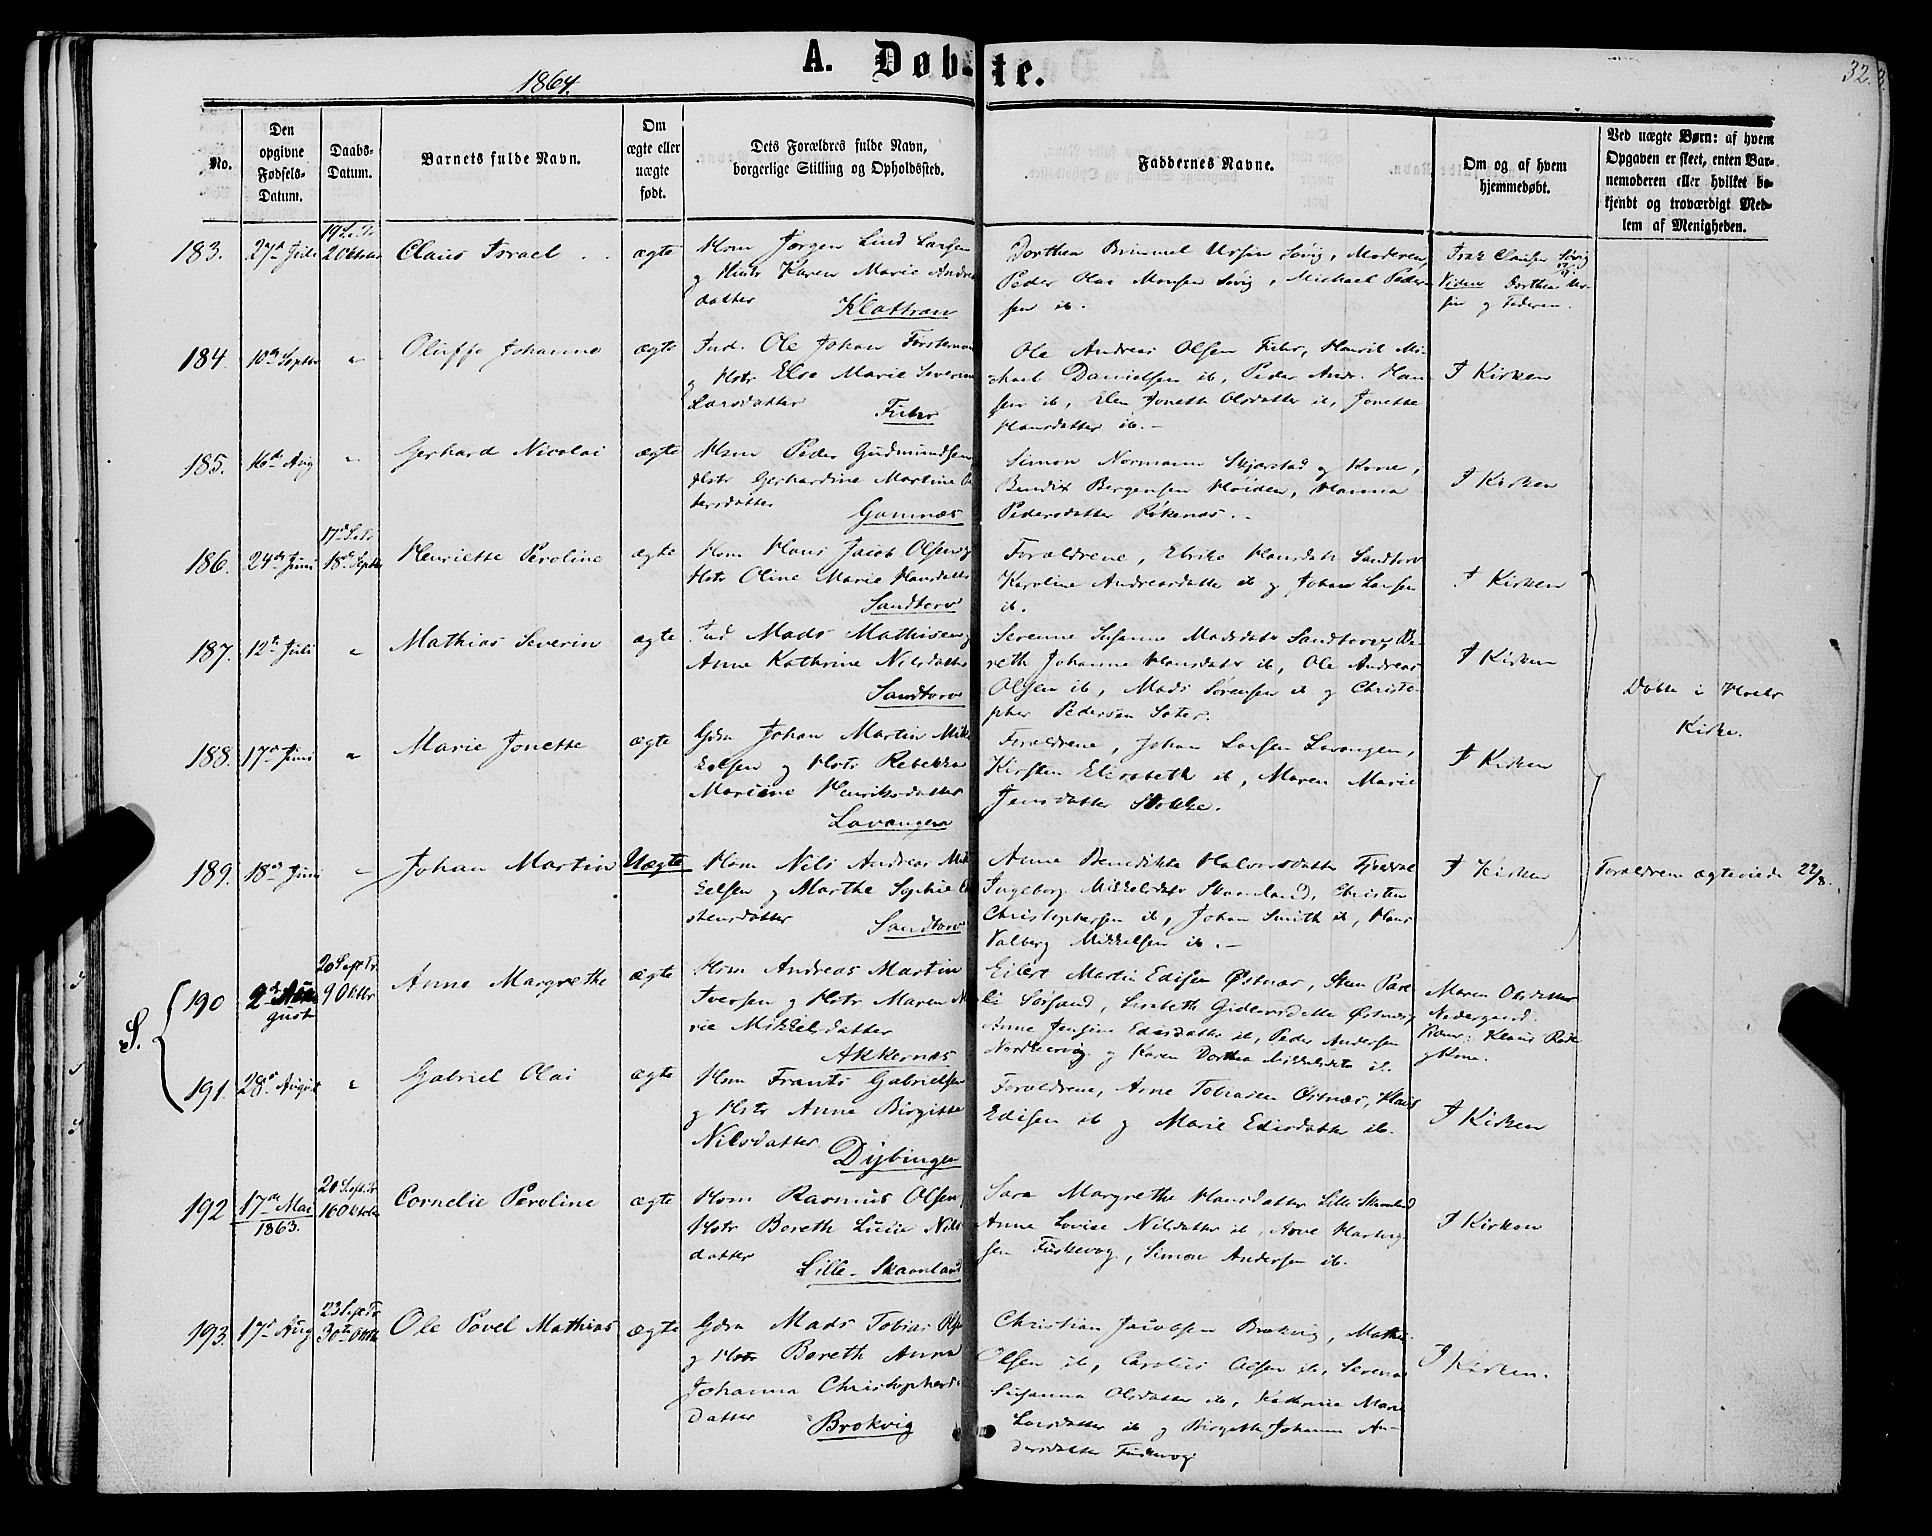 A. Døb-te.
1864.
32.
No.
Den opgivne Fødsels-Datum.
Daabs-Datum.
Barnets fulde Navn.
Om ægte eller uægte født.
Dets Forældres fulde Navn, borgerlige Stilling og Opholdssted.
Faddernes Navne.
Om og af hvem hjemmedøbt.
Ved uægte Børn: af hvem Opgaven er skeet, enten Barnemoderen eller hvilket bekjendt og troværdigt Medlem af Menigheden.
183. 27de Juli 2 Oktober Claus Israel ægte
Hsm Jørgen Lind Larsen
og Hustr Karen Marie Andreas
datter Klattran
Dorthea Brimmel Ursin Søvig, Moderen,
Peder Olai Monsen Søvig, Michael Peder-
sen ib.
Isak Clausen Søvig
Vidner Dorthea Ur-
sin og Faderen
184. 10de Septbr " Oluffe Johanna ægte
Ind. Ole Johan
og Hstr Else Marie Severine
Larsdatter
Ole Andreas Olsen Henrik Mi-
chael Danielsen ib, Peder Andr. Han-
sen ib, Elen Jonette Olsdatter ib, Jonette
Hansdatter ib. -
I Kirken
185. 16de Aug " Gerhard Nicolai ægte
Hsm Peder Gudmundsen
Hstr Gerhardine Martine Pe
dersdatter Gamnæs
Simon Normann Skjærstad og Kone,
Bendix Bergersen Høiden, Hanna
Pedersdatter Røkenæs. -
I Kirken
186. 24de Juni 17 S. e. Tr. 18de Septbr Henriette Peroline ægte
Hsm Hans Jacob Olsen og
Hstr Oline Marie Hansdatter
Sandtorv
Forældrene, Elrike Hansdatr Sandtorv
Karoline Andreasdatter ib og Johan Larsen
ib.
I Kirken
187. 12te Juli " Mathias Severin ægte
Ind Mads Mathisen og
Anne Kathrine Nilsdatter
Sandtorv
Serenne Susanne Madsdatr Sandtorv, Be-
reth Johanne Hansdatr ib, Ole Andreas
Olsen ib, Mads Sørensen ib og Christo-
pher Pedersen Sater.
I Kirken
Døbte i Hoels
Kirke.
188. 17de Juni " Marie Jonette ægte
Gdm Johan Martin Mik
kelsen og Hstr Rebekka
Mariane Henriksdatter
Lavangen
Forældrene, Johan Larsen Lavangen,
Kirsten Elisabeth ib, Maren Marie
Jensdatter Stokke.
I Kirken
189. 18de Juni " Johan Martin Uægte
Hsm Nils Andreas Mik
kelsen og Marthe Sophie
stensdatter
Sandtorv
Anne Benedikte Halvorsdatter Fjeldal
Ingeborg Mikkelsdatr Skaanland, Christen
Christophersen ib, Johan Smith ib, Hans
Valberg Mikkelsen ib. -
I Kirken
Forældrene ægteviede 22/8.
S.
190 2de August 20 S. e. Tr. 9 Oktbr Anne Margrethe ægte
Hsm Andreas Martin
Iversen og Hstr Maren Ma
rie Mikkelsdatter
Akkernæs
Eilert Martin Edisen Østnæs, Sten
Sørsand, Lisabeth Østnæs,
Anne Jensine Edisdatter ib, Peder Andersen
og Karen Dorthea Mikkelsdatr ib.
Maren Olsdatter
Nedergaard
Klaus
og Kone.
191. 28de August " Gabriel Olai ægte
Hsm Frants Gabrielsen
og Hstr Anne Birgitte
Nilsdatter Dybingen
Forældrene, Arne Tobiasen Østnæs, Hans
Edisen ib og Marie Edisdatter ib.
I Kirken
192 17de Mai 1863. 21 S. e. Tr. 16 Oktober Cornelie Peroline ægte
Hsm Rasmus Olsen,
Hstr Bereth Lucie Nils
datter
Lille-Skaanland
Sara Margrethe Hansdatter Lille Skaanland
Anne Lovise Nilsdatter ib, Arne Hartvig-
sen Fuskevog, Simon Andersen ib.
I Kirken
193. 17de Aug 23 S. e. Tr. 30te Oktbr Ole Povel Mathias ægte
Gdm Mads Tobias Olsen
og Hstr Bereth Anna
Johanna Christophers
datter Brokvig
Christian Jacobsen Brokvig, Mathis
Olsen ib, Carolius Olsen ib, Serena
Susanna Olsdatter ib, Kathrine Marie
Larsdatter ib og Birgithe Johanna An-
dersdatter Fuskevog
I Kirken.